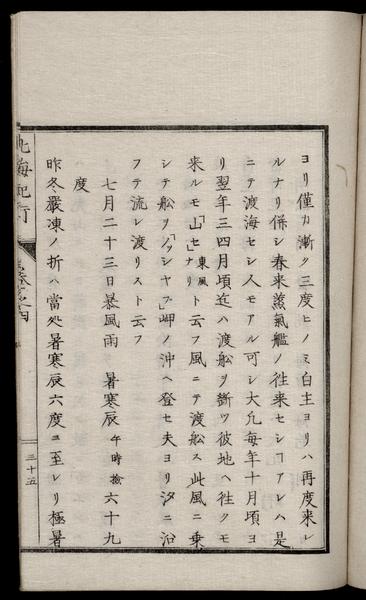 ヨリ僅カ漸ク三度ヒノミ白主ヨリハ再度来レ
ルナリ併シ春来蒸氣艦ノ往来セシヿアレハ是
ニテ渡海セシ人モアル可シ大凢毎年十月頃ヨ
リ翌年三四月頃迄ハ渡舩ヲ斷ツ彼地ヘ往クモ
来ルモ「山セ」東風ナリト云フ風ニテ渡舩ス此風ニ乗
シテ舩ヲ「ノツシヤフ」岬ノ沖ヘ登セ夫ヨリ汐ニ沿
フテ流レ渡リスト云フ
七月二十三日暴風雨 暑寒辰午時撿六十九
度
昨冬嚴凍ノ折ハ當処暑寒辰六度ヨ至レリ極暑
北海紀行
三十五